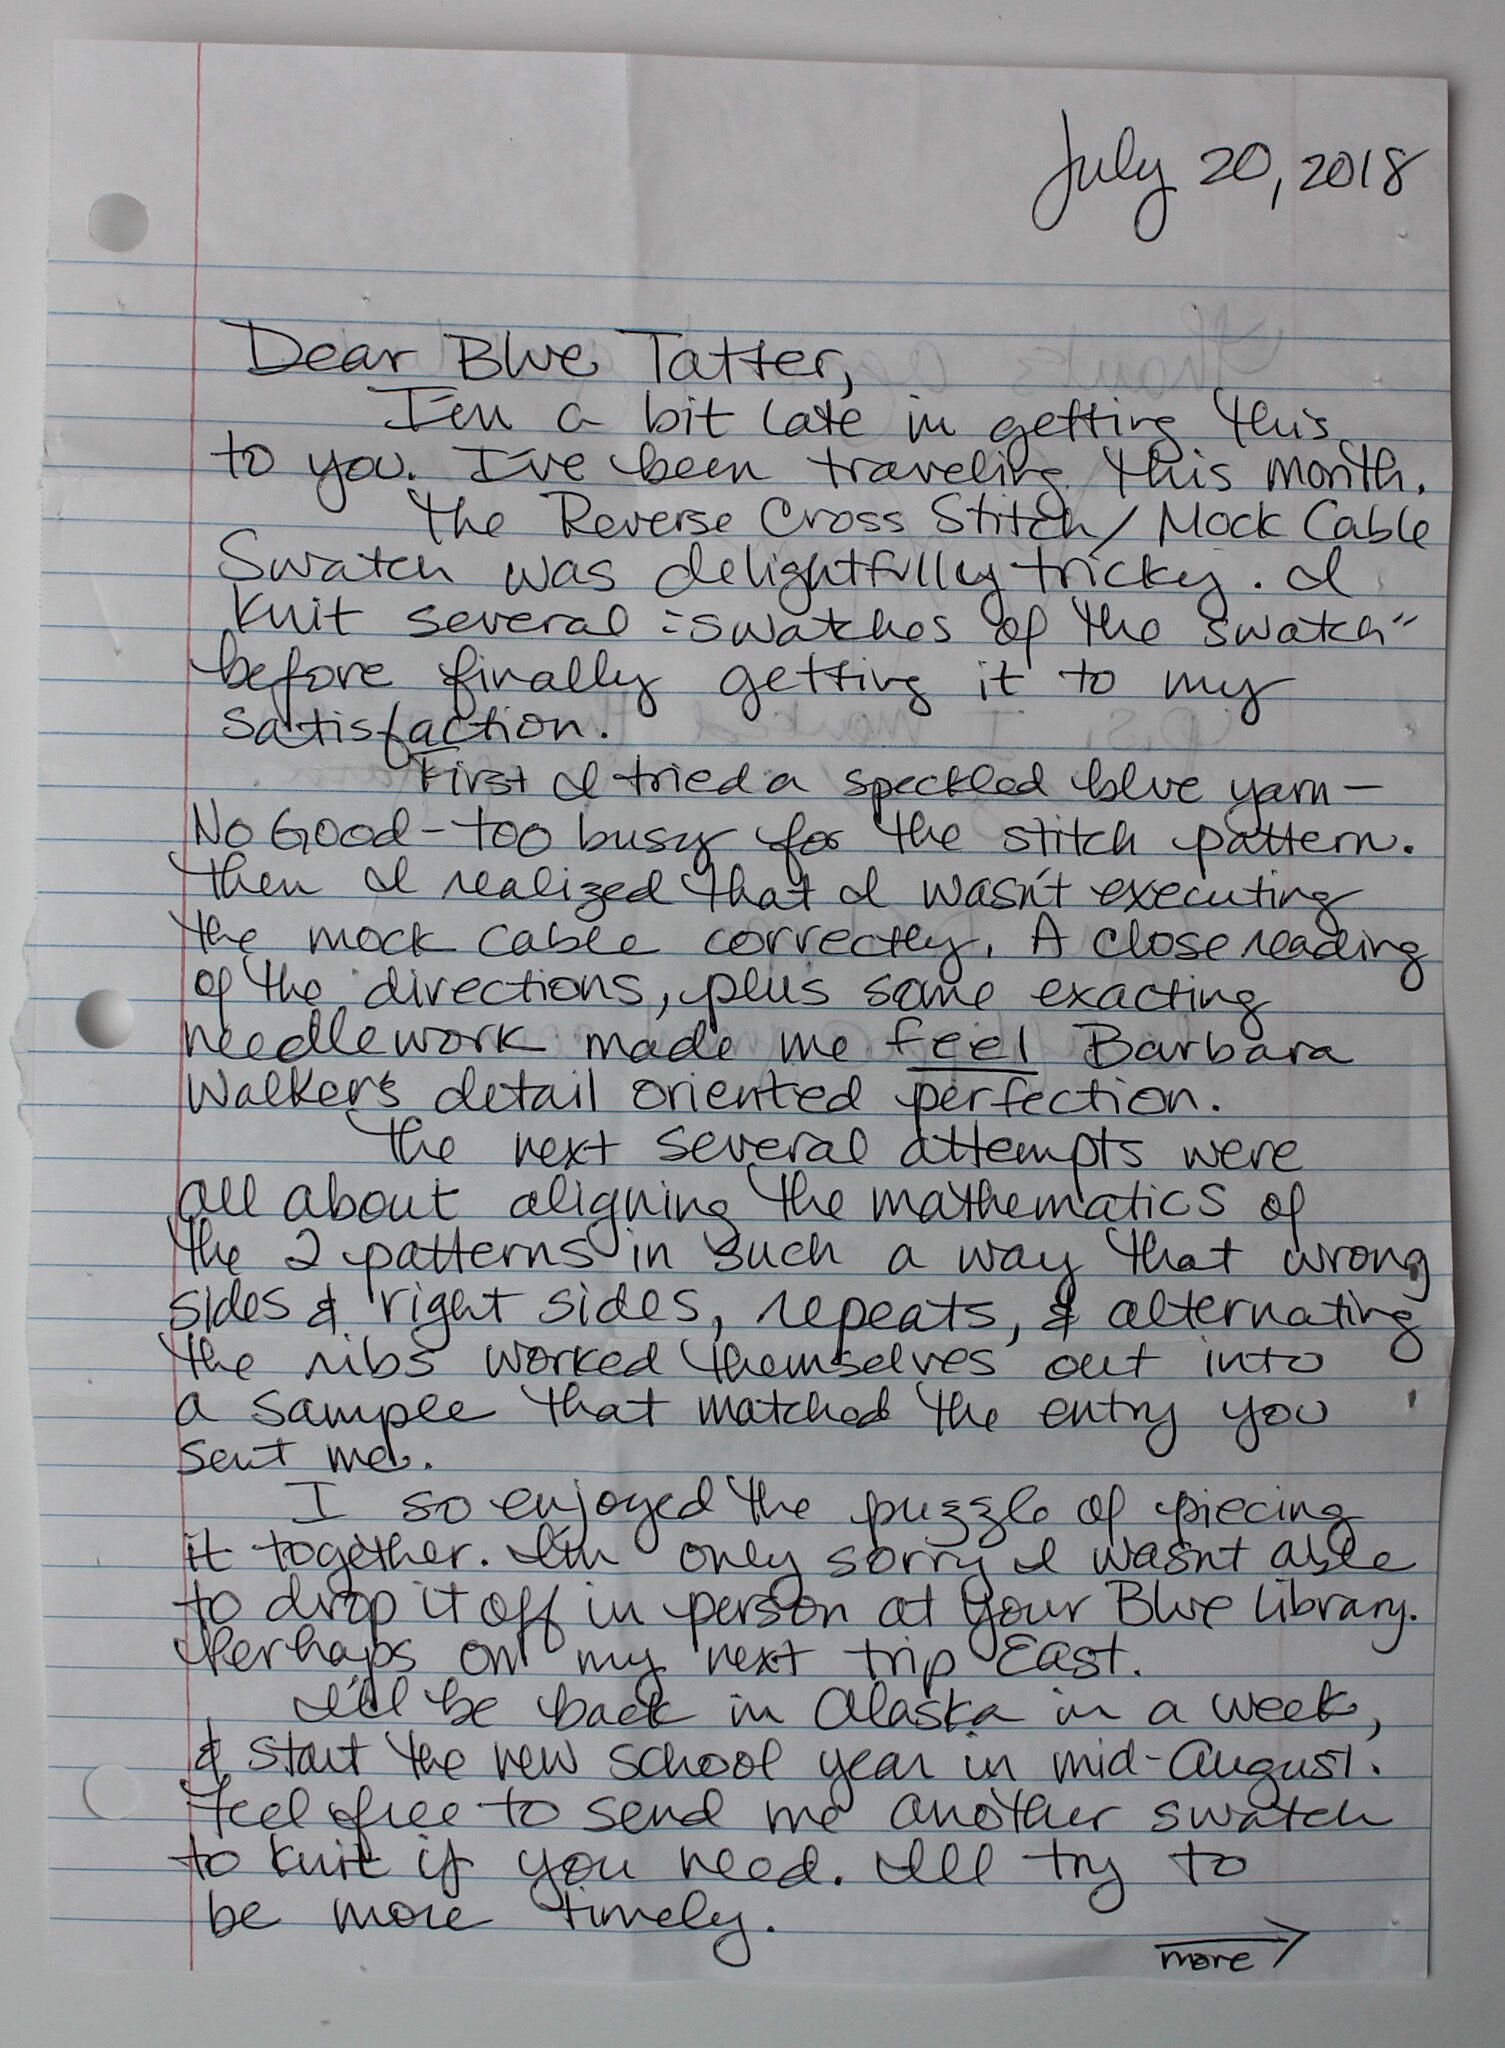 July 20, 2018
Dear Blue Tatter,
I'm a bit late in getting this
to you. I've been traveling this month.
The Reverse Cross Stitch/Mock Cable
Swatch was delightfully tricky. I
knit several "swatches of the swatch"
before finally getting it to my
satisfaction.
First I tried a speckled blue yarn—
No Good - too busy for the stitch pattern.
Then I realized that I wasn't executing
the mock cable correctly. A close reading
of the directions, plus some exacting
needlework made me feel Barbara
Walker's detail oriented perfection.
The next several attempts were
all about aligning the mathematics of
the 2 patterns in such a way that wrong
sides & right sides, repeats, & alternating
the ribs worked themselves out into
a sample that matched the entry you
sent me.
I so enjoyed the puzzle of piecing
it together. I'm only sorry I wasn't able
to drop it off in person at your Blue Library.
Perhaps on my next trip East.
I'll be back in Alaska in a week,
& start the new school year in mid-August.
Feel free to send me another swatch
to knit if you need. I'll try to
be more timely.
more →